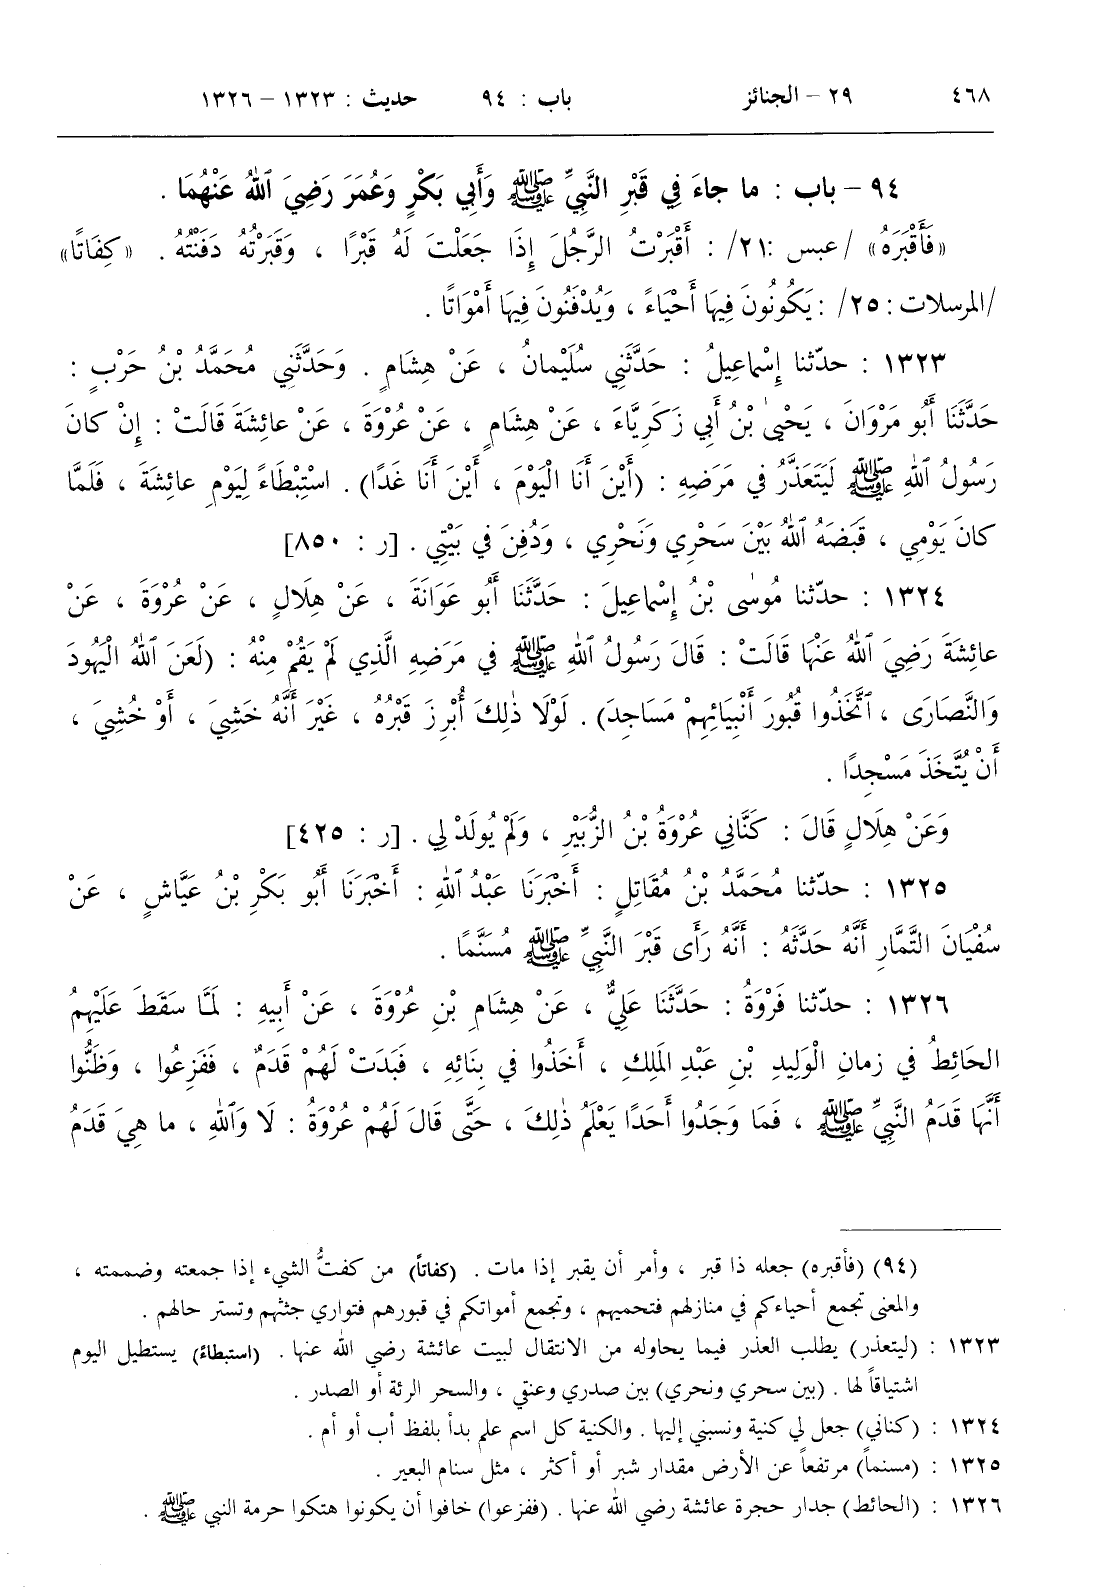 ٤٦٨ ٢٩ – الجنائز باب : ٩٤ حديث : ١٣٢٣ – ١٣٢٦
٩٤ – باب : ما جاءَ فِي قَبْرِ النَّبِيِّ ﷺ وَأَبِي بَكْرٍ وَعُمَرَ رَضِيَ ٱللهُ عَنْهُمَا .
«فَأَقْبَرَهُ» /عبس :٢١/ : أَقْبَرْتُ الرَّجُلَ إِذَا جَعَلْتَ لَهُ قَبْرًا ، وَقَبَرْتُهُ دَفَنْتُهُ . «كِفَاتًا»
/المرسلات : ٢٥/ : يَكُونُونَ فِيهَا أَحْيَاءً ، وَيُدْفَنُونَ فِيهَا أَمْوَاتًا .
١٣٢٣ : حدّثنا إِسْماعِيلُ : حَدَّثَنِي سُلَيْمانُ ، عَنْ هِشَامٍ . وَحَدَّثَنِي مُحَمَّدُ بْنُ حَرْبٍ :
حَدَّثَنَا أَبُو مَرْوَانَ ، يَحْيىٰ بْنُ أَبِي زَكَرِيَّاءَ ، عَنْ هِشَامٍ ، عَنْ عُرْوَةَ ، عَنْ عائِشَةَ قَالَتْ : إِنْ كانَ
رَسُولُ ٱللهِ ﷺ لَيَتَعَذَّرُ فِي مَرَضِهِ : (أَيْنَ أَنَا الْيَوْمَ ، أَيْنَ أَنَا غَدًا) . اسْتِبْطَاءً لِيَوْمِ عائِشَةَ ، فَلَمَّا
كانَ يَوْمِي ، قَبَضَهُ ٱللهُ بَيْنَ سَحْرِي وَنَحْرِي ، وَدُفِنَ فِي بَيْتِي . [ر : ٨٥٠]
١٣٢٤ : حدّثنا مُوسٰى بْنُ إِسْماعِيلَ : حَدَّثَنَا أَبُو عَوَانَةَ ، عَنْ هِلَالٍ ، عَنْ عُرْوَةَ ، عَنْ
عائِشَةَ رَضِيَ ٱللهُ عَنْهَا قَالَتْ : قَالَ رَسُولُ ٱللهِ ﷺ فِي مَرَضِهِ الَّذِي لَمْ يَقُمْ مِنْهُ : (لَعَنَ ٱللهُ الْيَهُودَ
وَالنَّصَارَى ، ٱتَّخَذُوا قُبُورَ أَنْبِيَائِهِمْ مَسَاجِدَ) . لَوْلَا ذٰلِكَ أُبْرِزَ قَبْرُهُ ، غَيْرَ أَنَّهُ خَشِيَ ، أَوْ خُشِيَ ،
أَنْ يُتَّخَذَ مَسْجِدًا .
وَعَنْ هِلَالٍ قَالَ : كَنَّانِي عُرْوَةُ بْنُ الزُّبَيْرِ ، وَلَمْ يُولَدْ لِي . [ر : ٤٢٥]
١٣٢٥ : حدّثنا مُحَمَّدُ بْنُ مُقَاتِلٍ : أَخْبَرَنَا عَبْدُ ٱللهِ : أَخْبَرَنَا أَبُو بَكْرِ بْنُ عَيَّاشٍ ، عَنْ
سُفْيَانَ التَّمَّارِ أَنَّهُ حَدَّثَهُ : أَنَّهُ رَأَى قَبْرَ النَّبِيِّ ﷺ مُسَنَّمًا .
١٣٢٦ : حدّثنا فَرْوَةُ : حَدَّثَنَا عَلِيٌّ ، عَنْ هِشَامِ بْنِ عُرْوَةَ ، عَنْ أَبِيهِ : لَمَّا سَقَطَ عَلَيْهِمُ
الحَائِطُ فِي زمانِ الْوَلِيدِ بْنِ عَبْدِ المَلِكِ ، أَخَذُوا فِي بِنَائِهِ ، فَبَدَتْ لَهُمْ قَدَمٌ ، فَفَزِعُوا ، وَظَنُّوا
أَنَّهَا قَدَمُ النَّبِيِّ ﷺ ، فَمَا وَجَدُوا أَحَدًا يَعْلَمُ ذٰلِكَ ، حَتَّى قَالَ لَهُمْ عُرْوَةُ : لَا وَٱللهِ ، ما هِيَ قَدَمُ
(٩٤) (فأقبره) جعله ذا قبر ، وأمر أن يقبر إذا مات . (كفاتاً) من كفتُّ الشيء إذا جمعته وضممته ،
والمعنى تجمع أحياءكم في منازلهم فتحميهم ، وتجمع أمواتكم في قبورهم فتواري جثثهم وتستر حالهم .
١٣٢٣ : (ليتعذر) يطلب العذر فيما يحاوله من الانتقال لبيت عائشة رضي الله عنها . (استبطاءً) يستطيل اليوم
اشتياقاً لها . (بين سحري ونحري) بين صدري وعنقي ، والسحر الرئة أو الصدر .
١٣٢٤ : (كناني) جعل لي كنية ونسبني إليها . والكنية كل اسم علم بدأ بلفظ أب أو أم .
١٣٢٥ : (مسنماً) مرتفعاً عن الأرض مقدار شبر أو أكثر ، مثل سنام البعير .
١٣٢٦ : (الحائط) جدار حجرة عائشة رضي الله عنها . (ففزعوا) خافوا أن يكونوا هتكوا حرمة النبي ﷺ .